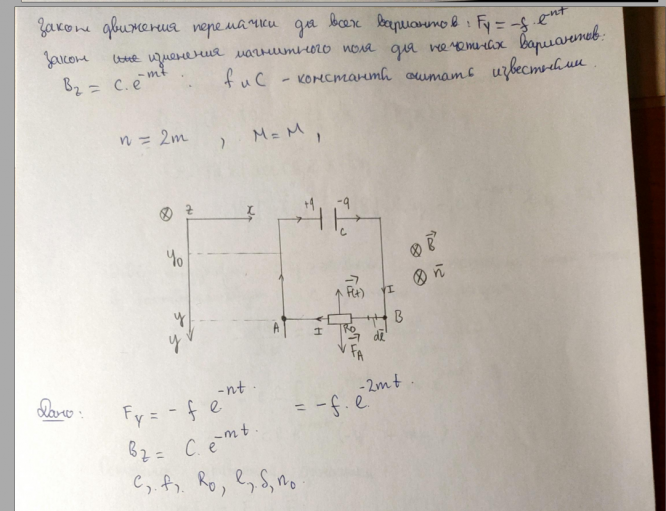 Закон движения перемычки для всех вариантов: Fy = -f e^-nt
Закон изменения магнитного поля для нечетных вариантов:
Bz = C·e^-mt. f и C – константы считать известными.
n = 2m , M = M ,
⊗ z x +q -q
C
y₀ ⊗ B⃗
⊗ n⃗
F⃗(t) I
y A I R₀ dl⃗ B
y F⃗A
Дано: Fy = -f e^-nt. = -f·e^-2mt.
Bz = C·e^-mt.
C, f, R₀, l, S, n₀.